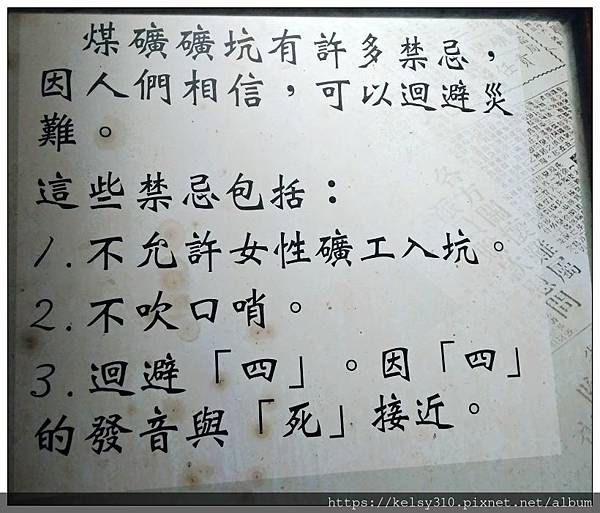 煤礦礦坑有許多禁忌，
因人們相信，可以迴避災
難。
這些禁忌包括：
1.不允許女性礦工入坑。
2.不吹口哨。
3.迴避「四」。因「四」
的發音與「死」接近。
https://kelsy310.pixnet.net/album